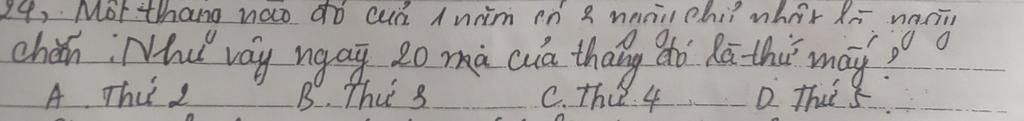 24, Một tháng nào đó của 1 năm có 2 ngày chủ nhật là ngày
chẵn. Như vây ngay 20 mà của tháng đó là thứ mấy?
A. Thứ 2 B. Thứ 3 C. Thứ 4 D. Thứ 5